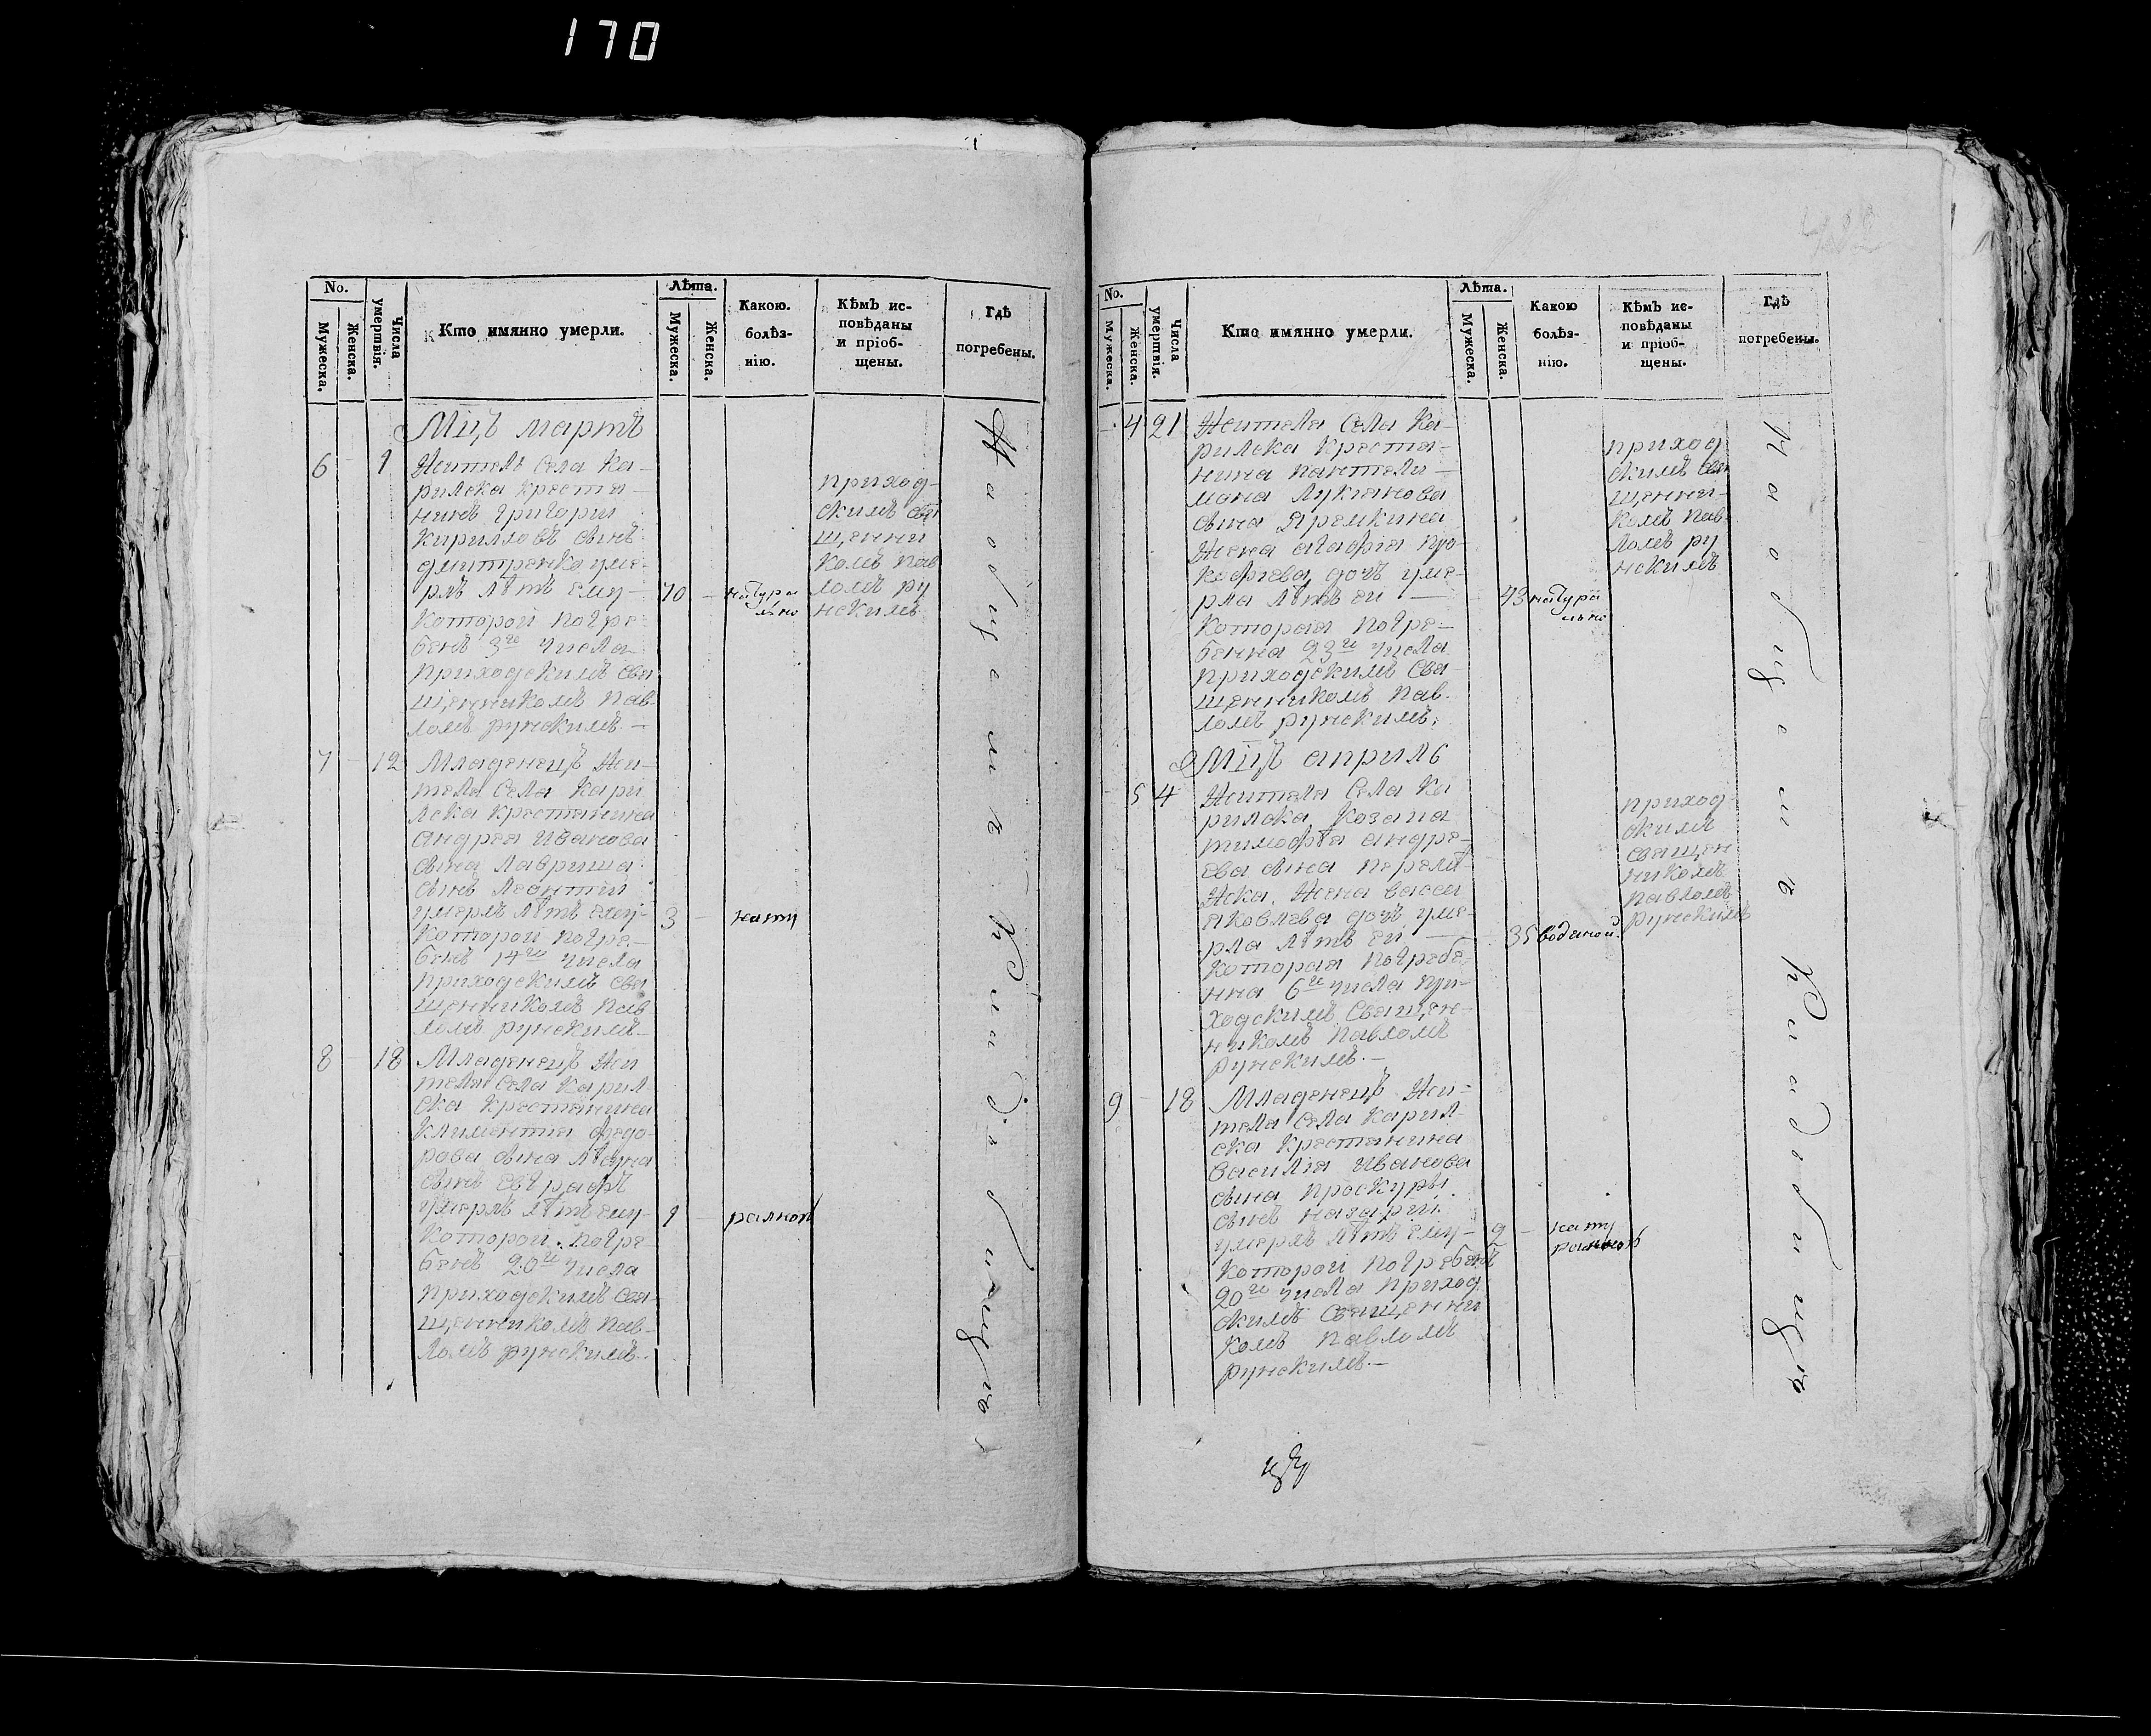 170
No.
Мужеска.
Женска.
Числа умертвія.
Кто имянно умерли.
Лѣта.
Мужеска.
Женска.
Какою.
болѣз-
нію.
Кѣмъ ис-
повѣданы
и пріоб-
щены.
Гдѣ
погребены.
Мцъ мартъ
6 - 1
Житель села Ка-
рилска крестя-
нинъ григории
кириловъ сынъ
дмитренко уме-
рлъ лѣтъ ему- 70 - натура
льно
которои погре-
бенъ 3го числа
приходскимъ свя
щенникомъ Пав
ломъ рунскимъ.-
приход-
скимъ свя
щенни
комъ пав
ломъ ру
нскимъ
7 - 12 Младенецъ жи-
теля села Кари
лска крестянина
андрея иванова
сына лавриша
сынъ леонтии
умерлъ лѣтъ ему- 3 -
которои погре-
бенъ 14го числа
приходскимъ свя
щенникомъ пав
ломъ рунскимъ-
8 - 18 Младенецъ жи
теля села карил
ска крестянина
климентия федо-
рова сына
сынъ евграфъ
умерлъ лѣтъ ему- 1 -
которои погре-
бенъ 20го числа
приходскимъ свя-
щенникомъ пав-
ломъ рунскимъ.
На общемъ кладбищѣ
No.
Мужеска.
Женска.
Числа умертвія.
Кто имянно умерли.
Лѣта.
Мужеска.
Женска.
Какою
болѣз-
нію.
Кѣмъ ис-
повѣданы
и пріоб-
щены.
Гдѣ
погребены.
- 4 21 Жителя села Ка-
рилска крестя-
нина пантели-
мона лукянова
сына яремкина
жена агафія про-
кофіева дочъ уме-
рла лѣтъ еи - 43 натура
льно
которая погре-
бенна 23го числа
приходскимъ свя-
щенникомъ пав-
ломъ рунскимъ.
приход
скимъ свя
щенни-
комъ пав-
ломъ ру
нскимъ
Мцъ априль
- 5 4 Жителя села Ка
рилска козака
тимофѣя андре-
ева сына
жена васси
яковлева дочъ уме-
рла лѣтъ еи - 35 водяной.
которая погребе-
нна 6го числа при-
ходскимъ священ-
никомъ павломъ
рунскимъ.-
приход-
скимъ
священ
никомъ
павломъ
рунскимъ
9 - 18 Младенецъ жи-
теля села карил-
ска крестянина
василія иванова
сына проскуры
сынъ назарий
умерлъ лѣтъ ему- 2 -
которои погребенъ
20го числа приход
скимъ священни
комъ павломъ
рунскимъ.-
На общемъ кладбищѣ